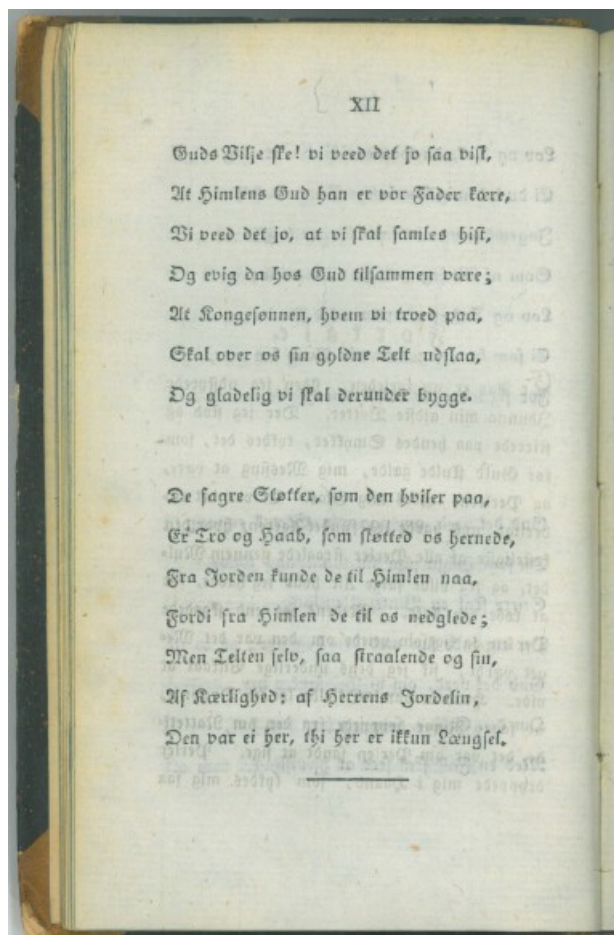 XII
Guds Vilje ske! vi veed det jo saa vist,
At Himlens Gud han er vor Fader kære,
Vi veed det jo, at vi skal samles hist,
Og evig da hos Gud tilsammen være;
At Kongesønnen, hvem vi troed paa,
Skal over os sin gyldne Telt udslaa,
Og gladelig vi skal derunder bygge.
De fagre Støtter, som den hviler paa,
Er Tro og Haab, som støtted os hernede,
Fra Jorden kunde de til Himlen naa,
Fordi fra Himlen de til os nedglede;
Men Telten selv, saa straalende og fin,
Af Kærlighed: af Herrens Jordelin,
Den var ei her, thi her er ikkun Længsel.